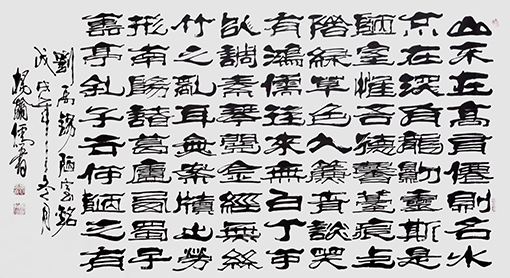 山不在高有僊則名水
不在深有龍則靈斯是
陋室惟吾德馨苔痕上
階綠草色入簾青談笑
有鴻儒往來無白丁可
以調素琴閱金經無絲
竹之亂耳無案牘之勞
形南陽諸葛廬西蜀子
雲亭孔子云何陋之有
劉禹錫陋室銘
戊戌年冬月
楊儒書